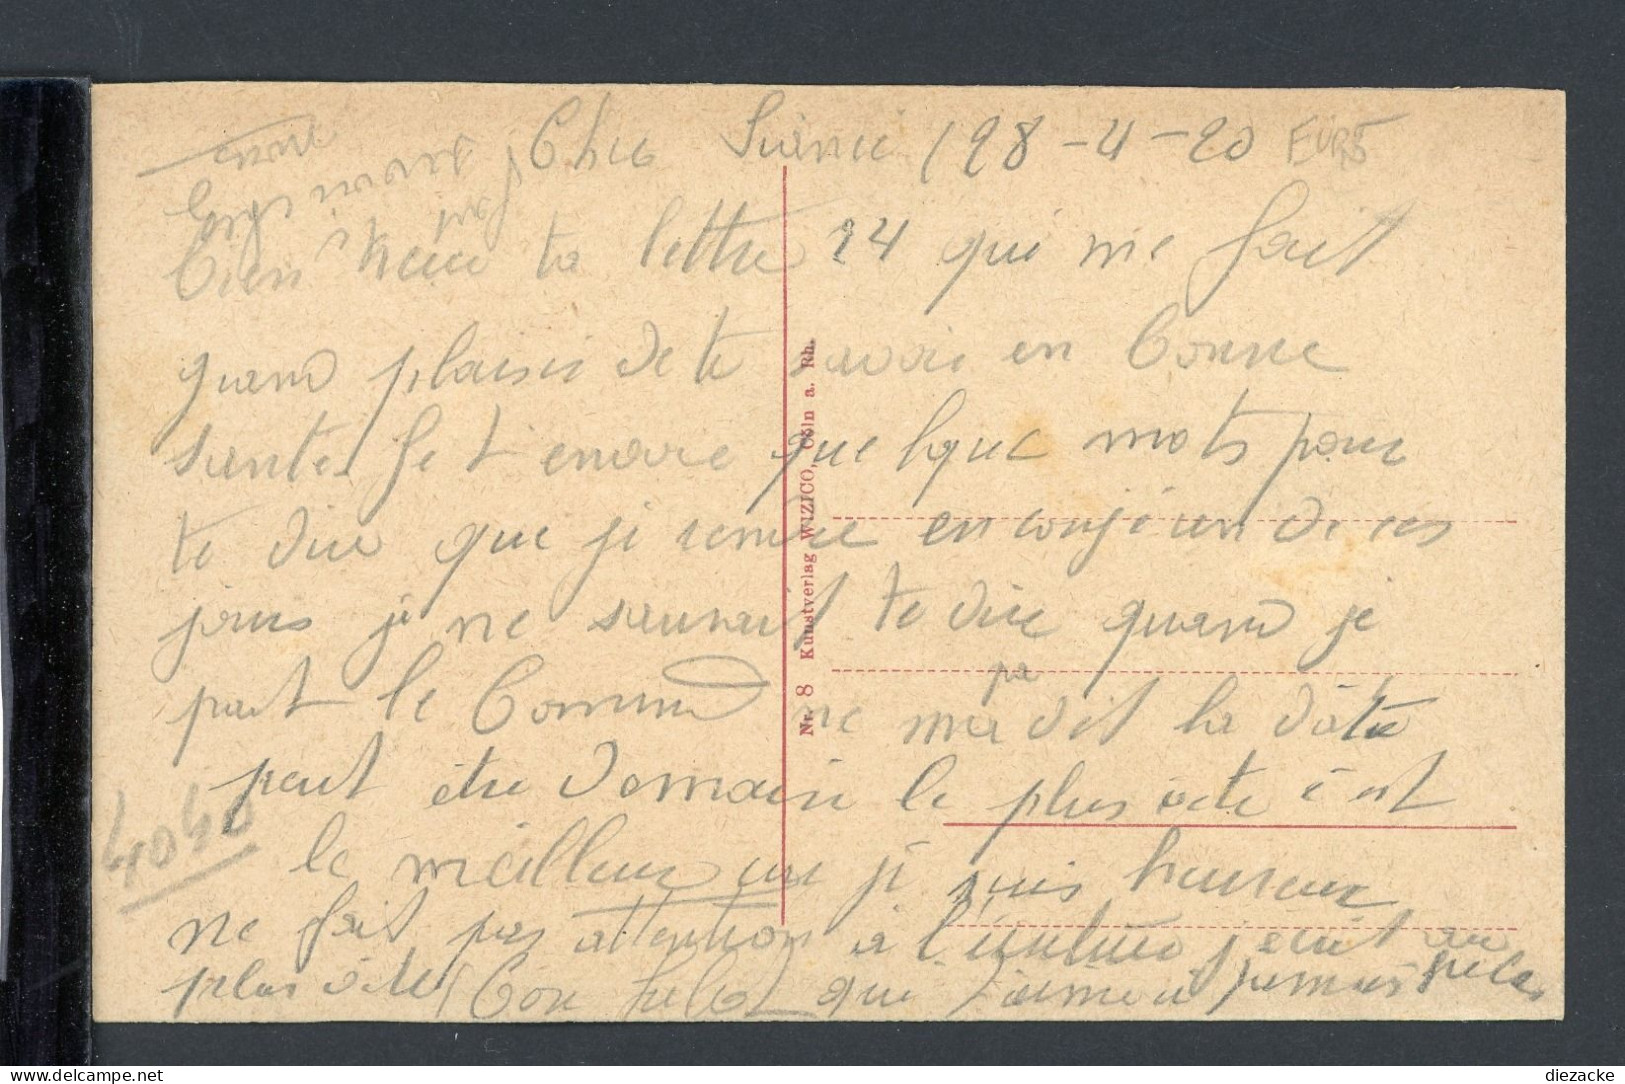 28-4-20
bien reçu ta lettre 24 qui me fait
grand plaisir de te savoir en bonne
santé je t encore quelque mots pour
te dire que je rentre en conjé un de ces
jours je ne saurait te dire quand je
part le Command ne ma pa dit la date
peut être domain le plus vite c est
le meilleur je suis heureux
ne fait pas attention a l'écriture j ecrit au
plus vite Bon qui t'aime
4040
Nr. 8 Kunstverlag WIZICO, Cöln a. Rh.
diezacke